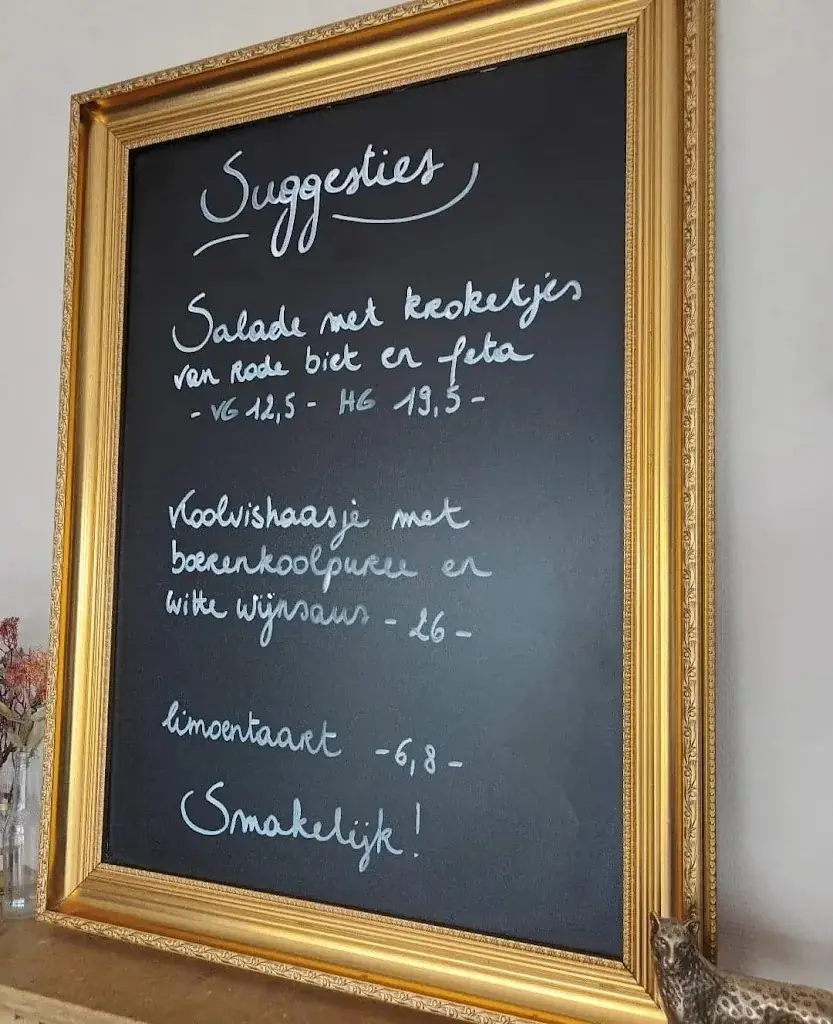 Suggesties
Salade met kroketjes
van rode biet en feta
- VG 12,5 - HG 19,5 -
Koolvishaasje met
boerenkoolpuree en
witte wijnsaus - 26 -
limoentaart - 6,8 -
Smakelijk!